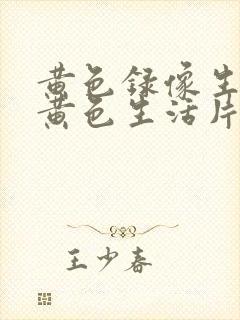 黄色录像生
黄色生活片
王少春